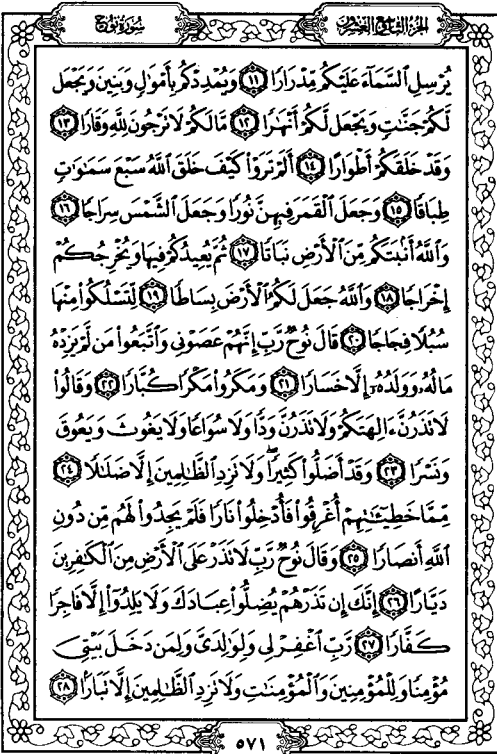 الجزء التاسع والعشرون
سورة نوح
يُرْسِلِ ٱلسَّمَآءَ عَلَيْكُم مِّدْرَارًا ﴿١١﴾ وَيُمْدِدْكُم بِأَمْوَٰلٍ وَبَنِينَ وَيَجْعَل
لَّكُمْ جَنَّٰتٍ وَيَجْعَل لَّكُمْ أَنْهَٰرًا ﴿١٢﴾ مَّا لَكُمْ لَا تَرْجُونَ لِلَّهِ وَقَارًا ﴿١٣﴾
وَقَدْ خَلَقَكُمْ أَطْوَارًا ﴿١٤﴾ أَلَمْ تَرَوْا۟ كَيْفَ خَلَقَ ٱللَّهُ سَبْعَ سَمَٰوَٰتٍ
طِبَاقًا ﴿١٥﴾ وَجَعَلَ ٱلْقَمَرَ فِيهِنَّ نُورًا وَجَعَلَ ٱلشَّمْسَ سِرَاجًا ﴿١٦﴾
وَٱللَّهُ أَنۢبَتَكُم مِّنَ ٱلْأَرْضِ نَبَاتًا ﴿١٧﴾ ثُمَّ يُعِيدُكُمْ فِيهَا وَيُخْرِجُكُمْ
إِخْرَاجًا ﴿١٨﴾ وَٱللَّهُ جَعَلَ لَكُمُ ٱلْأَرْضَ بِسَاطًا ﴿١٩﴾ لِّتَسْلُكُوا۟ مِنْهَا
سُبُلًا فِجَاجًا ﴿٢٠﴾ قَالَ نُوحٌ رَّبِّ إِنَّهُمْ عَصَوْنِى وَٱتَّبَعُوا۟ مَن لَّمْ يَزِدْهُ
مَالُهُۥ وَوَلَدُهُۥٓ إِلَّا خَسَارًا ﴿٢١﴾ وَمَكَرُوا۟ مَكْرًا كُبَّارًا ﴿٢٢﴾ وَقَالُوا۟
لَا تَذَرُنَّ ءَالِهَتَكُمْ وَلَا تَذَرُنَّ وَدًّا وَلَا سُوَاعًا وَلَا يَغُوثَ وَيَعُوقَ
وَنَسْرًا ﴿٢٣﴾ وَقَدْ أَضَلُّوا۟ كَثِيرًا ۖ وَلَا تَزِدِ ٱلظَّٰلِمِينَ إِلَّا ضَلَٰلًا ﴿٢٤﴾
مِّمَّا خَطِيٓـَٰٔتِهِمْ أُغْرِقُوا۟ فَأُدْخِلُوا۟ نَارًا فَلَمْ يَجِدُوا۟ لَهُم مِّن دُونِ
ٱللَّهِ أَنصَارًا ﴿٢٥﴾ وَقَالَ نُوحٌ رَّبِّ لَا تَذَرْ عَلَى ٱلْأَرْضِ مِنَ ٱلْكَٰفِرِينَ
دَيَّارًا ﴿٢٦﴾ إِنَّكَ إِن تَذَرْهُمْ يُضِلُّوا۟ عِبَادَكَ وَلَا يَلِدُوٓا۟ إِلَّا فَاجِرًا
كَفَّارًا ﴿٢٧﴾ رَّبِّ ٱغْفِرْ لِى وَلِوَٰلِدَىَّ وَلِمَن دَخَلَ بَيْتِىَ
مُؤْمِنًا وَلِلْمُؤْمِنِينَ وَٱلْمُؤْمِنَٰتِ وَلَا تَزِدِ ٱلظَّٰلِمِينَ إِلَّا تَبَارًۢا ﴿٢٨﴾
٥٧١